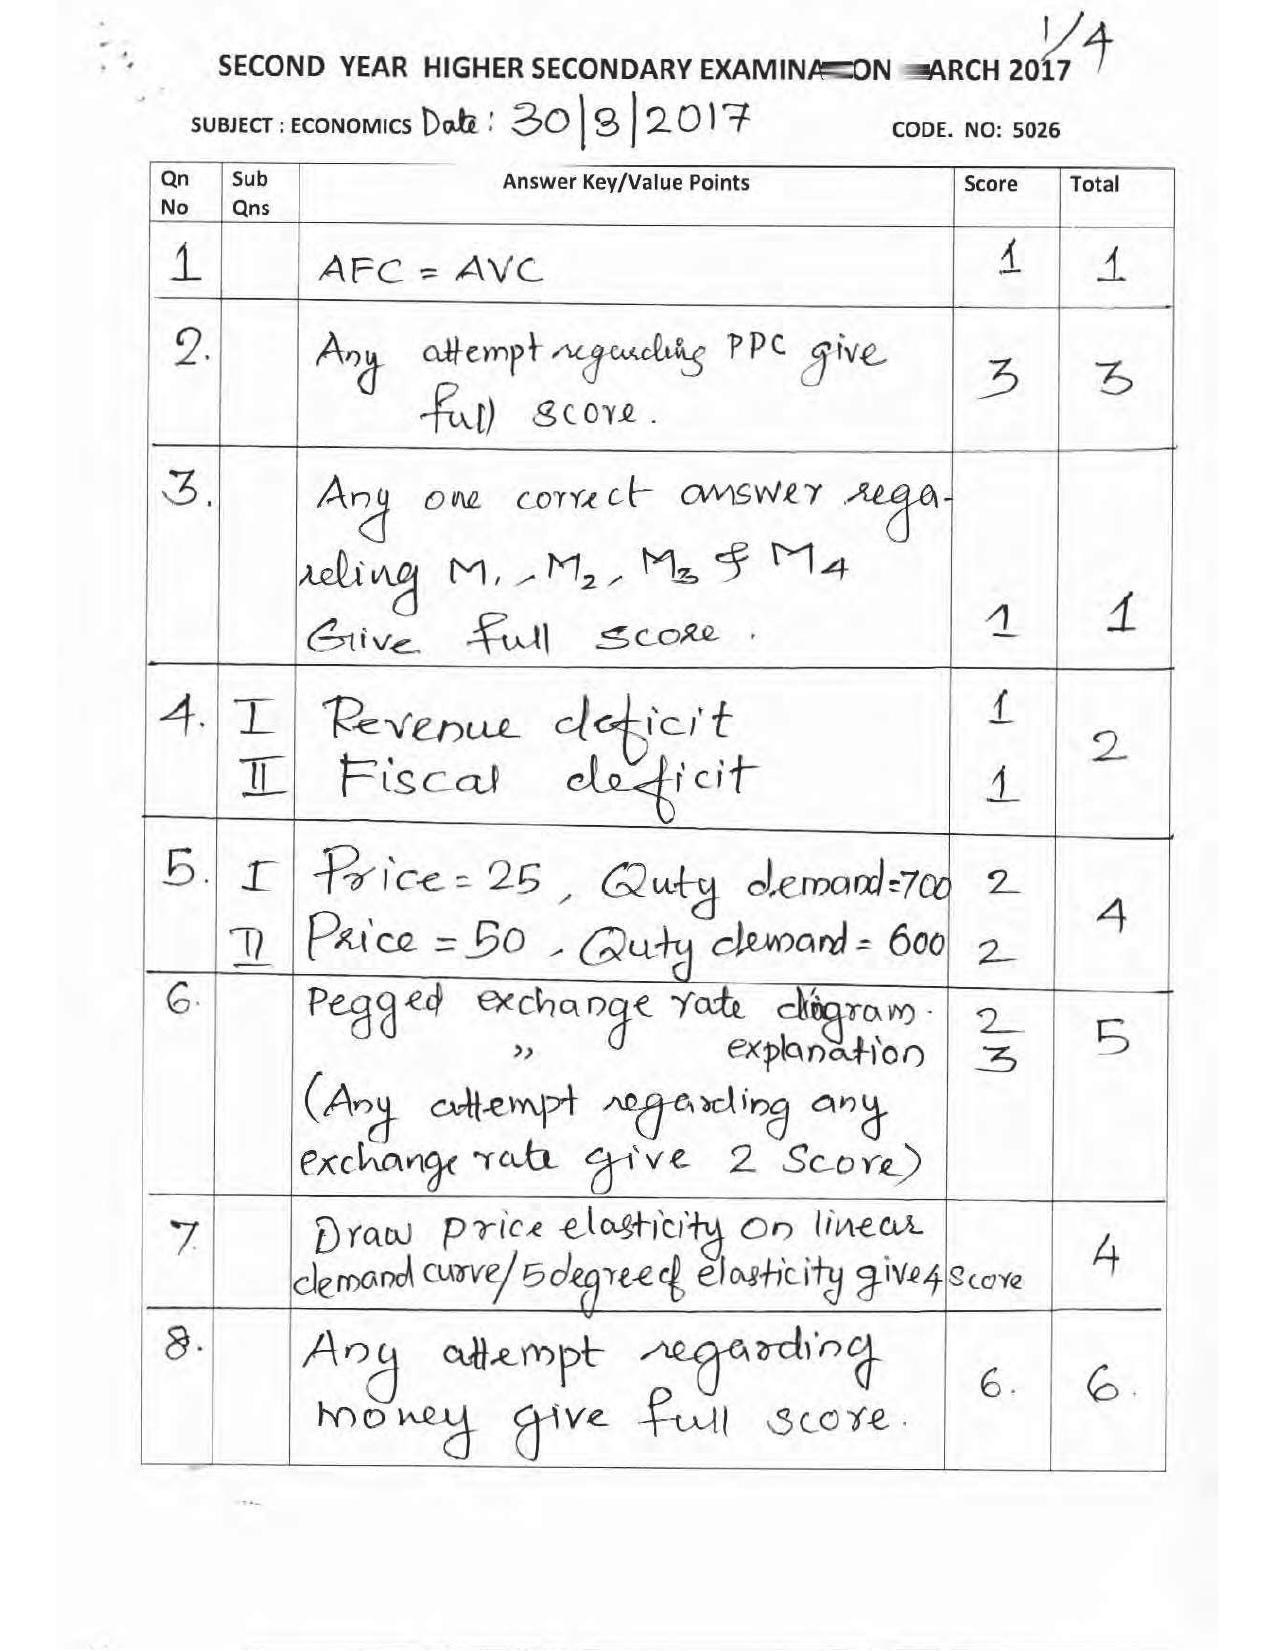 1/4
SECOND YEAR HIGHER SECONDARY EXAMINATION MARCH 2017
SUBJECT : ECONOMICS Date: 30|3|2017 CODE. NO: 5026
Qn No Sub Qns Answer Key/Value Points Score Total
1 AFC = AVC 1 1
2. Any attempt regarding PPC give
full score. 3 3
3. Any one correct answer rega-
rding M1, M2, M3 & M4
Give full score. 1 1
4. I Revenue deficit 1
II Fiscal deficit 1 2
5. I Price = 25, Quty demand=700 2
II Price = 50, Quty demand = 600 2 4
6. Pegged exchange rate diagram. 2
" explanation 3 5
(Any attempt regarding any
exchange rate give 2 Score)
7. Draw price elasticity on linear
demand curve/5 degree of elasticity give 4 Score 4
8. Any attempt regarding
money give full score. 6. 6.